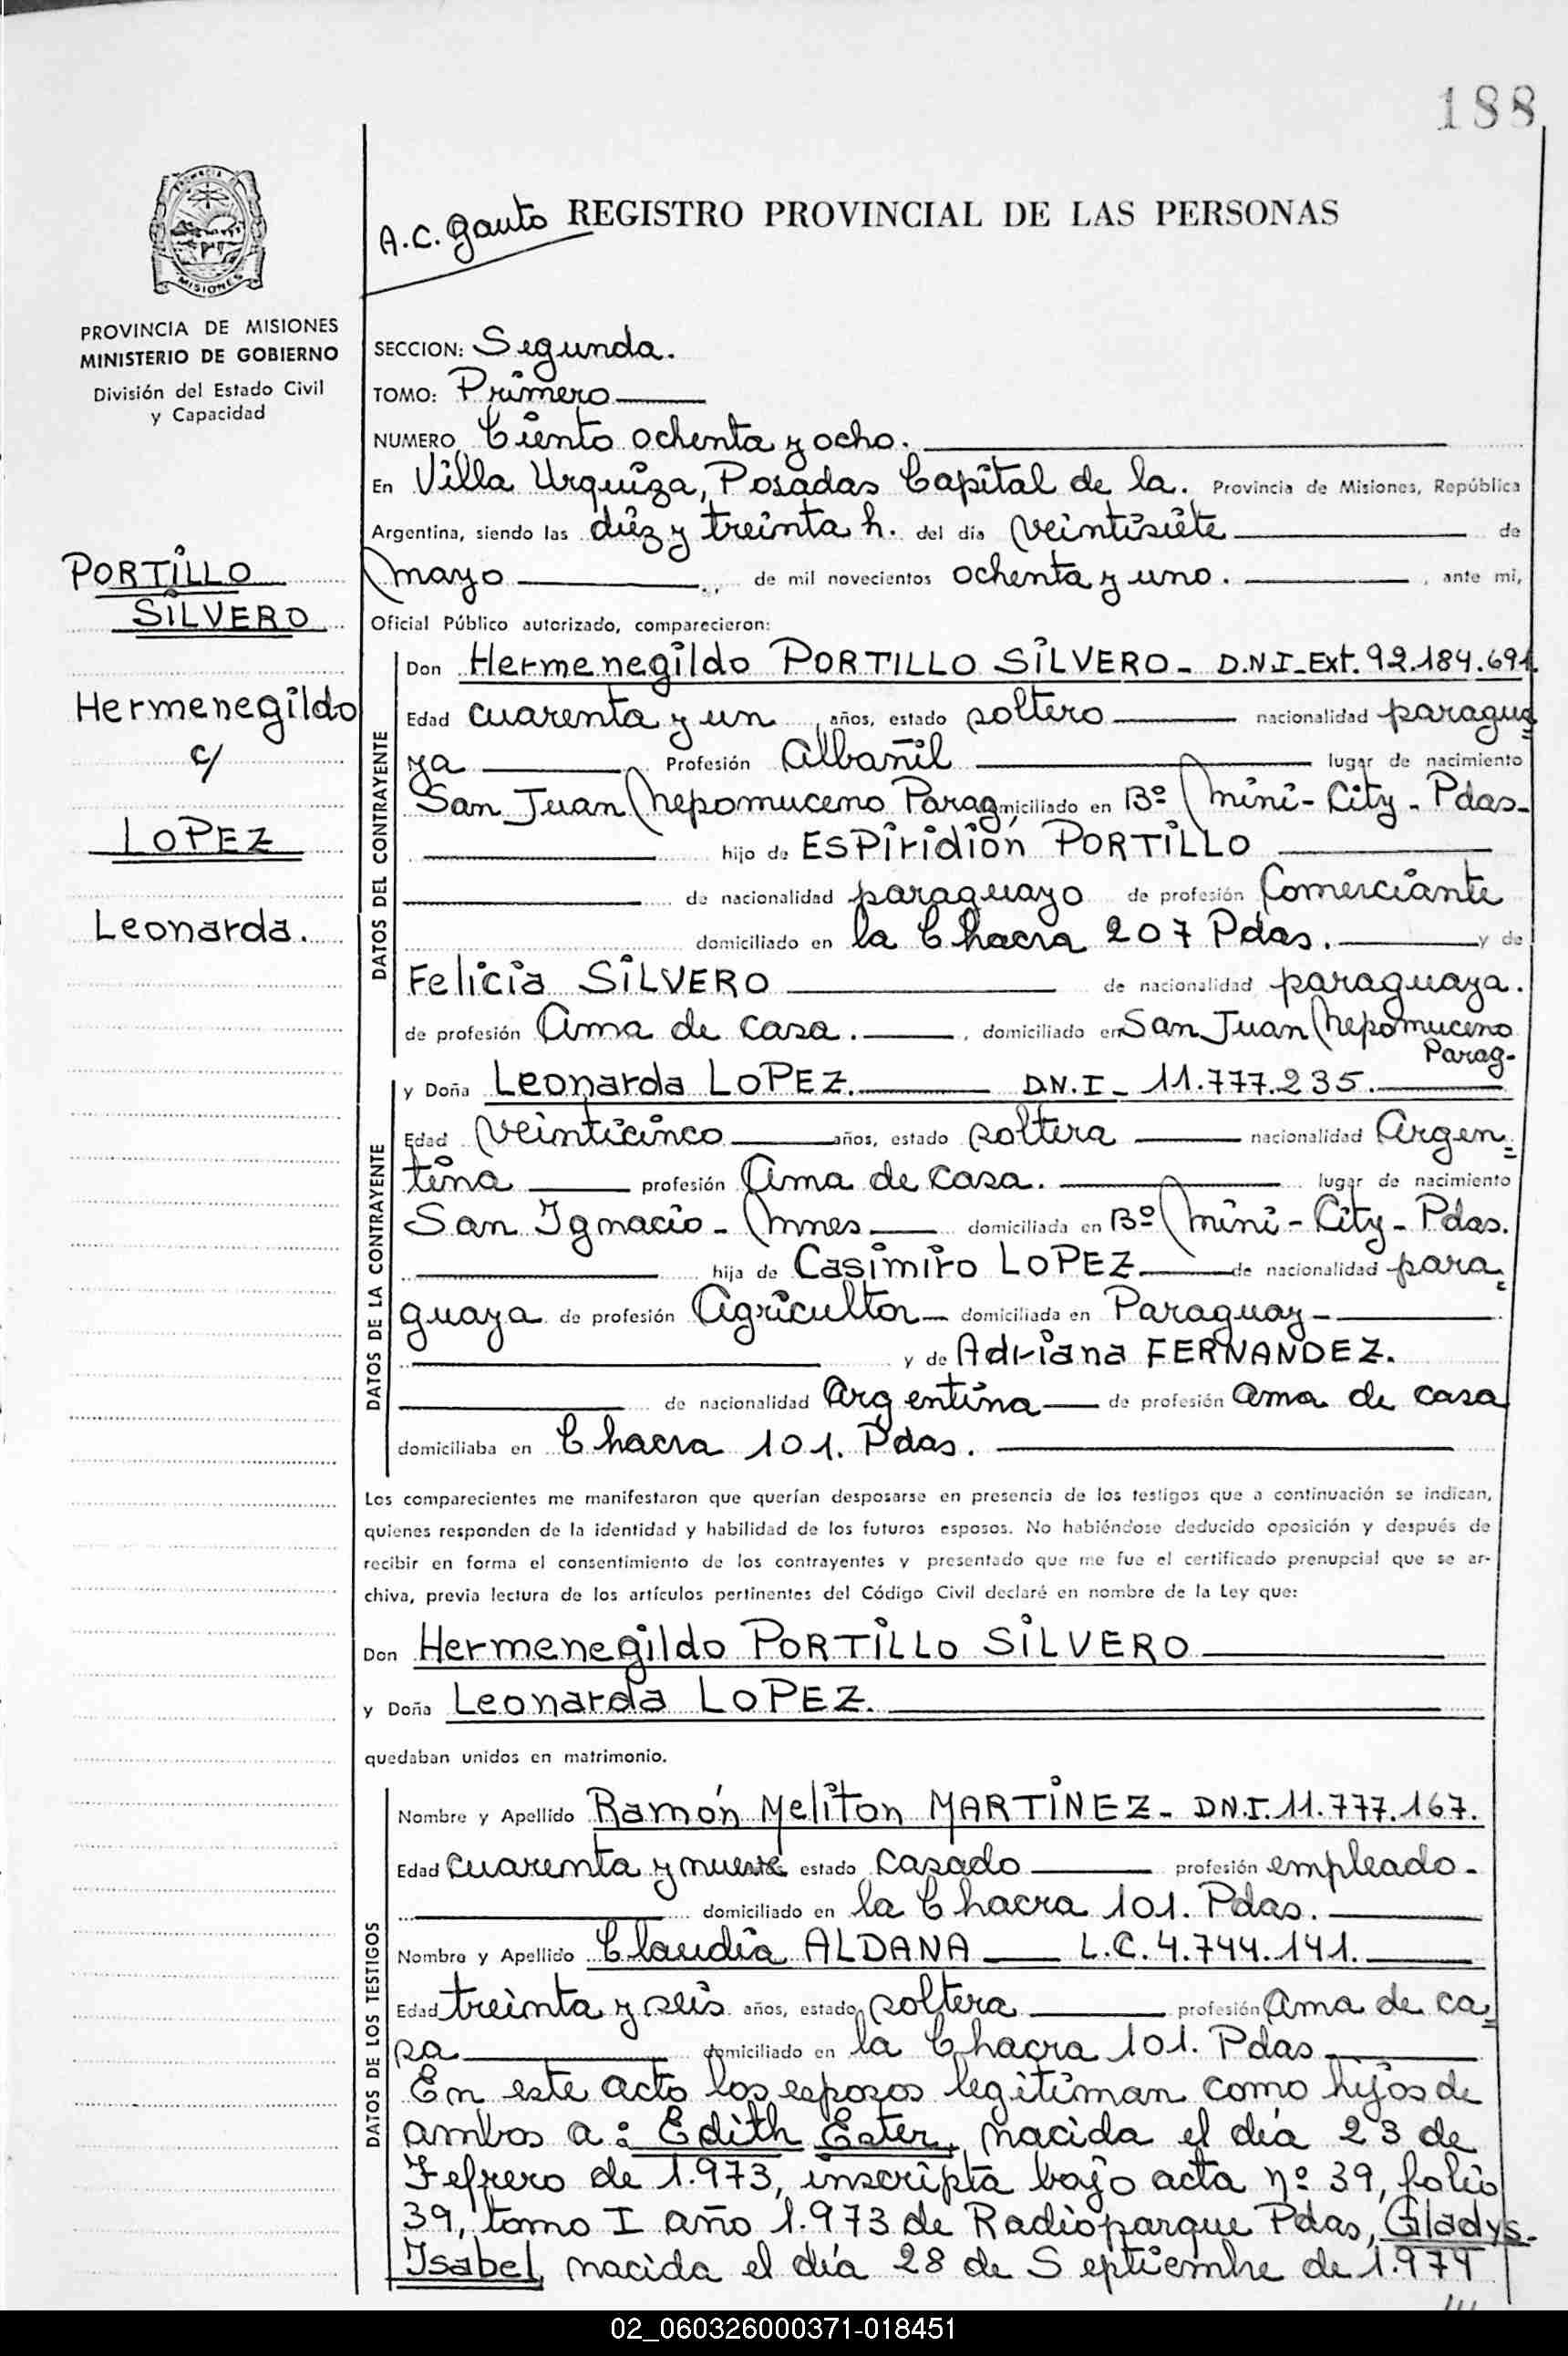 188
A.C. Gauto REGISTRO PROVINCIAL DE LAS PERSONAS
PROVINCIA DE MISIONES
MINISTERIO DE GOBIERNO
División del Estado Civil
y Capacidad
PORTILLO
SILVERO
Hermenegildo
c/
LOPEZ
Leonarda.
SECCION: Segunda.
TOMO: Primero
NUMERO Ciento ochenta y ocho.
En Villa Urquiza, Posadas Capital de la. Provincia de Misiones, República
Argentina, siendo las diez y treinta h. del día veintisiete de
mayo de mil novecientos ochenta y uno. , ante mi,
Oficial Público autorizado, comparecieron:
DATOS DEL CONTRAYENTE
Don Hermenegildo PORTILLO SILVERO - D.N.I-Ext. 92.184.691.
Edad cuarenta y un años, estado soltero nacionalidad paragua=
ya Profesión Albañil lugar de nacimiento
San Juan Nepomuceno Parag miciliado en Bº Mini-City - Pdas-
hijo de ESPiridión PORTILLO
de nacionalidad paraguayo de profesión Comerciante
domiciliado en la Chacra 207 Pdas. y de
Felicia SILVERO de nacionalidad paraguaya.
de profesión Ama de casa. , domiciliado en San Juan Nepomuceno
Parag-
DATOS DE LA CONTRAYENTE
y Doña Leonarda LOPEZ. D.N.I- 11.777.235.
Edad veinticinco años, estado soltera nacionalidad Argen=
tina profesión Ama de casa. lugar de nacimiento
San Ignacio - Mnes domiciliada en Bº Mini-City - Pdas.
hija de Casimiro LOPEZ de nacionalidad para=
guaya de profesión Agricultor domiciliada en Paraguay-
y de Adriana FERNANDEZ.
de nacionalidad Argentina de profesión ama de casa
domiciliaba en Chacra 101. Pdas.
Los comparecientes me manifestaron que querían desposarse en presencia de los testigos que a continuación se indican,
quienes responden de la identidad y habilidad de los futuros esposos. No habiéndose deducido oposición y después de
recibir en forma el consentimiento de los contrayentes y presentado que me fue el certificado prenupcial que se ar-
chiva, previa lectura de los artículos pertinentes del Código Civil declaré en nombre de la Ley que:
Don Hermenegildo PORTILLO SILVERO
y Doña Leonarda LOPEZ.
quedaban unidos en matrimonio.
DATOS DE LOS TESTIGOS
Nombre y Apellido Ramón Meliton MARTINEZ- DN.I. 11.777.167.
Edad cuarenta y nueve estado casado profesión empleado-
domiciliado en la Chacra 101. Pdas.
Nombre y Apellido Claudia ALDANA L.C. 4.744.141.
Edad treinta y seis años, estado soltera profesión Ama de ca=
sa domiciliado en la Chacra 101. Pdas
En este acto los esposos legitiman como hijos de
ambos a: Edith Ester, nacida el día 23 de
Fefrero de 1.973, inscripta bajo acta nº 39, folio
39, tomo I año 1.973 de Radioparque Pdas, Gladys-
Isabel, nacida el día 28 de Septiembre de 1.974
///
02_060326000371-018451